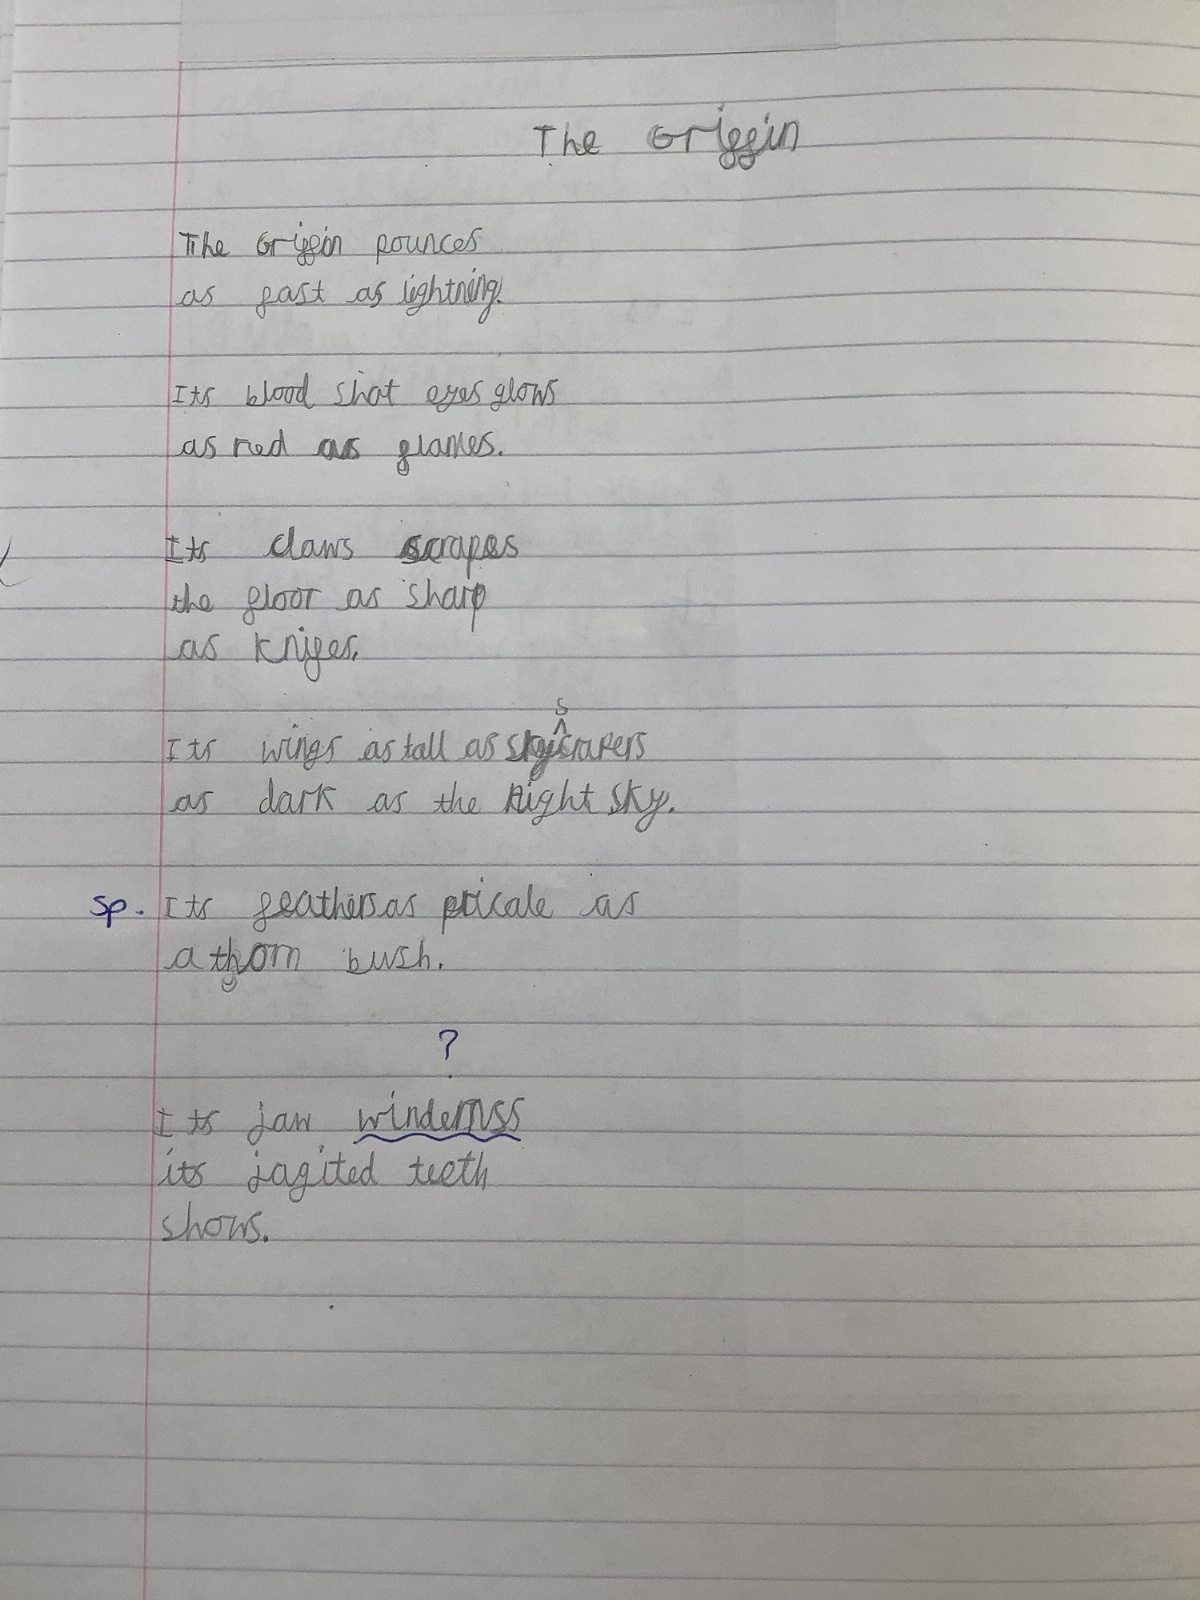 The Griffin
The Griffin pounces
as fast as lightning.
Its blood shot eyes glows
as red as flames.
Its claws scrapes
the floor as sharp
as knifes.
s
Its wings as tall as skyscrapers
as dark as the night sky.
sp. Its feathers as pricale as
a thorn bush.
?
Its jaw windernss
its jagited teeth
shows.